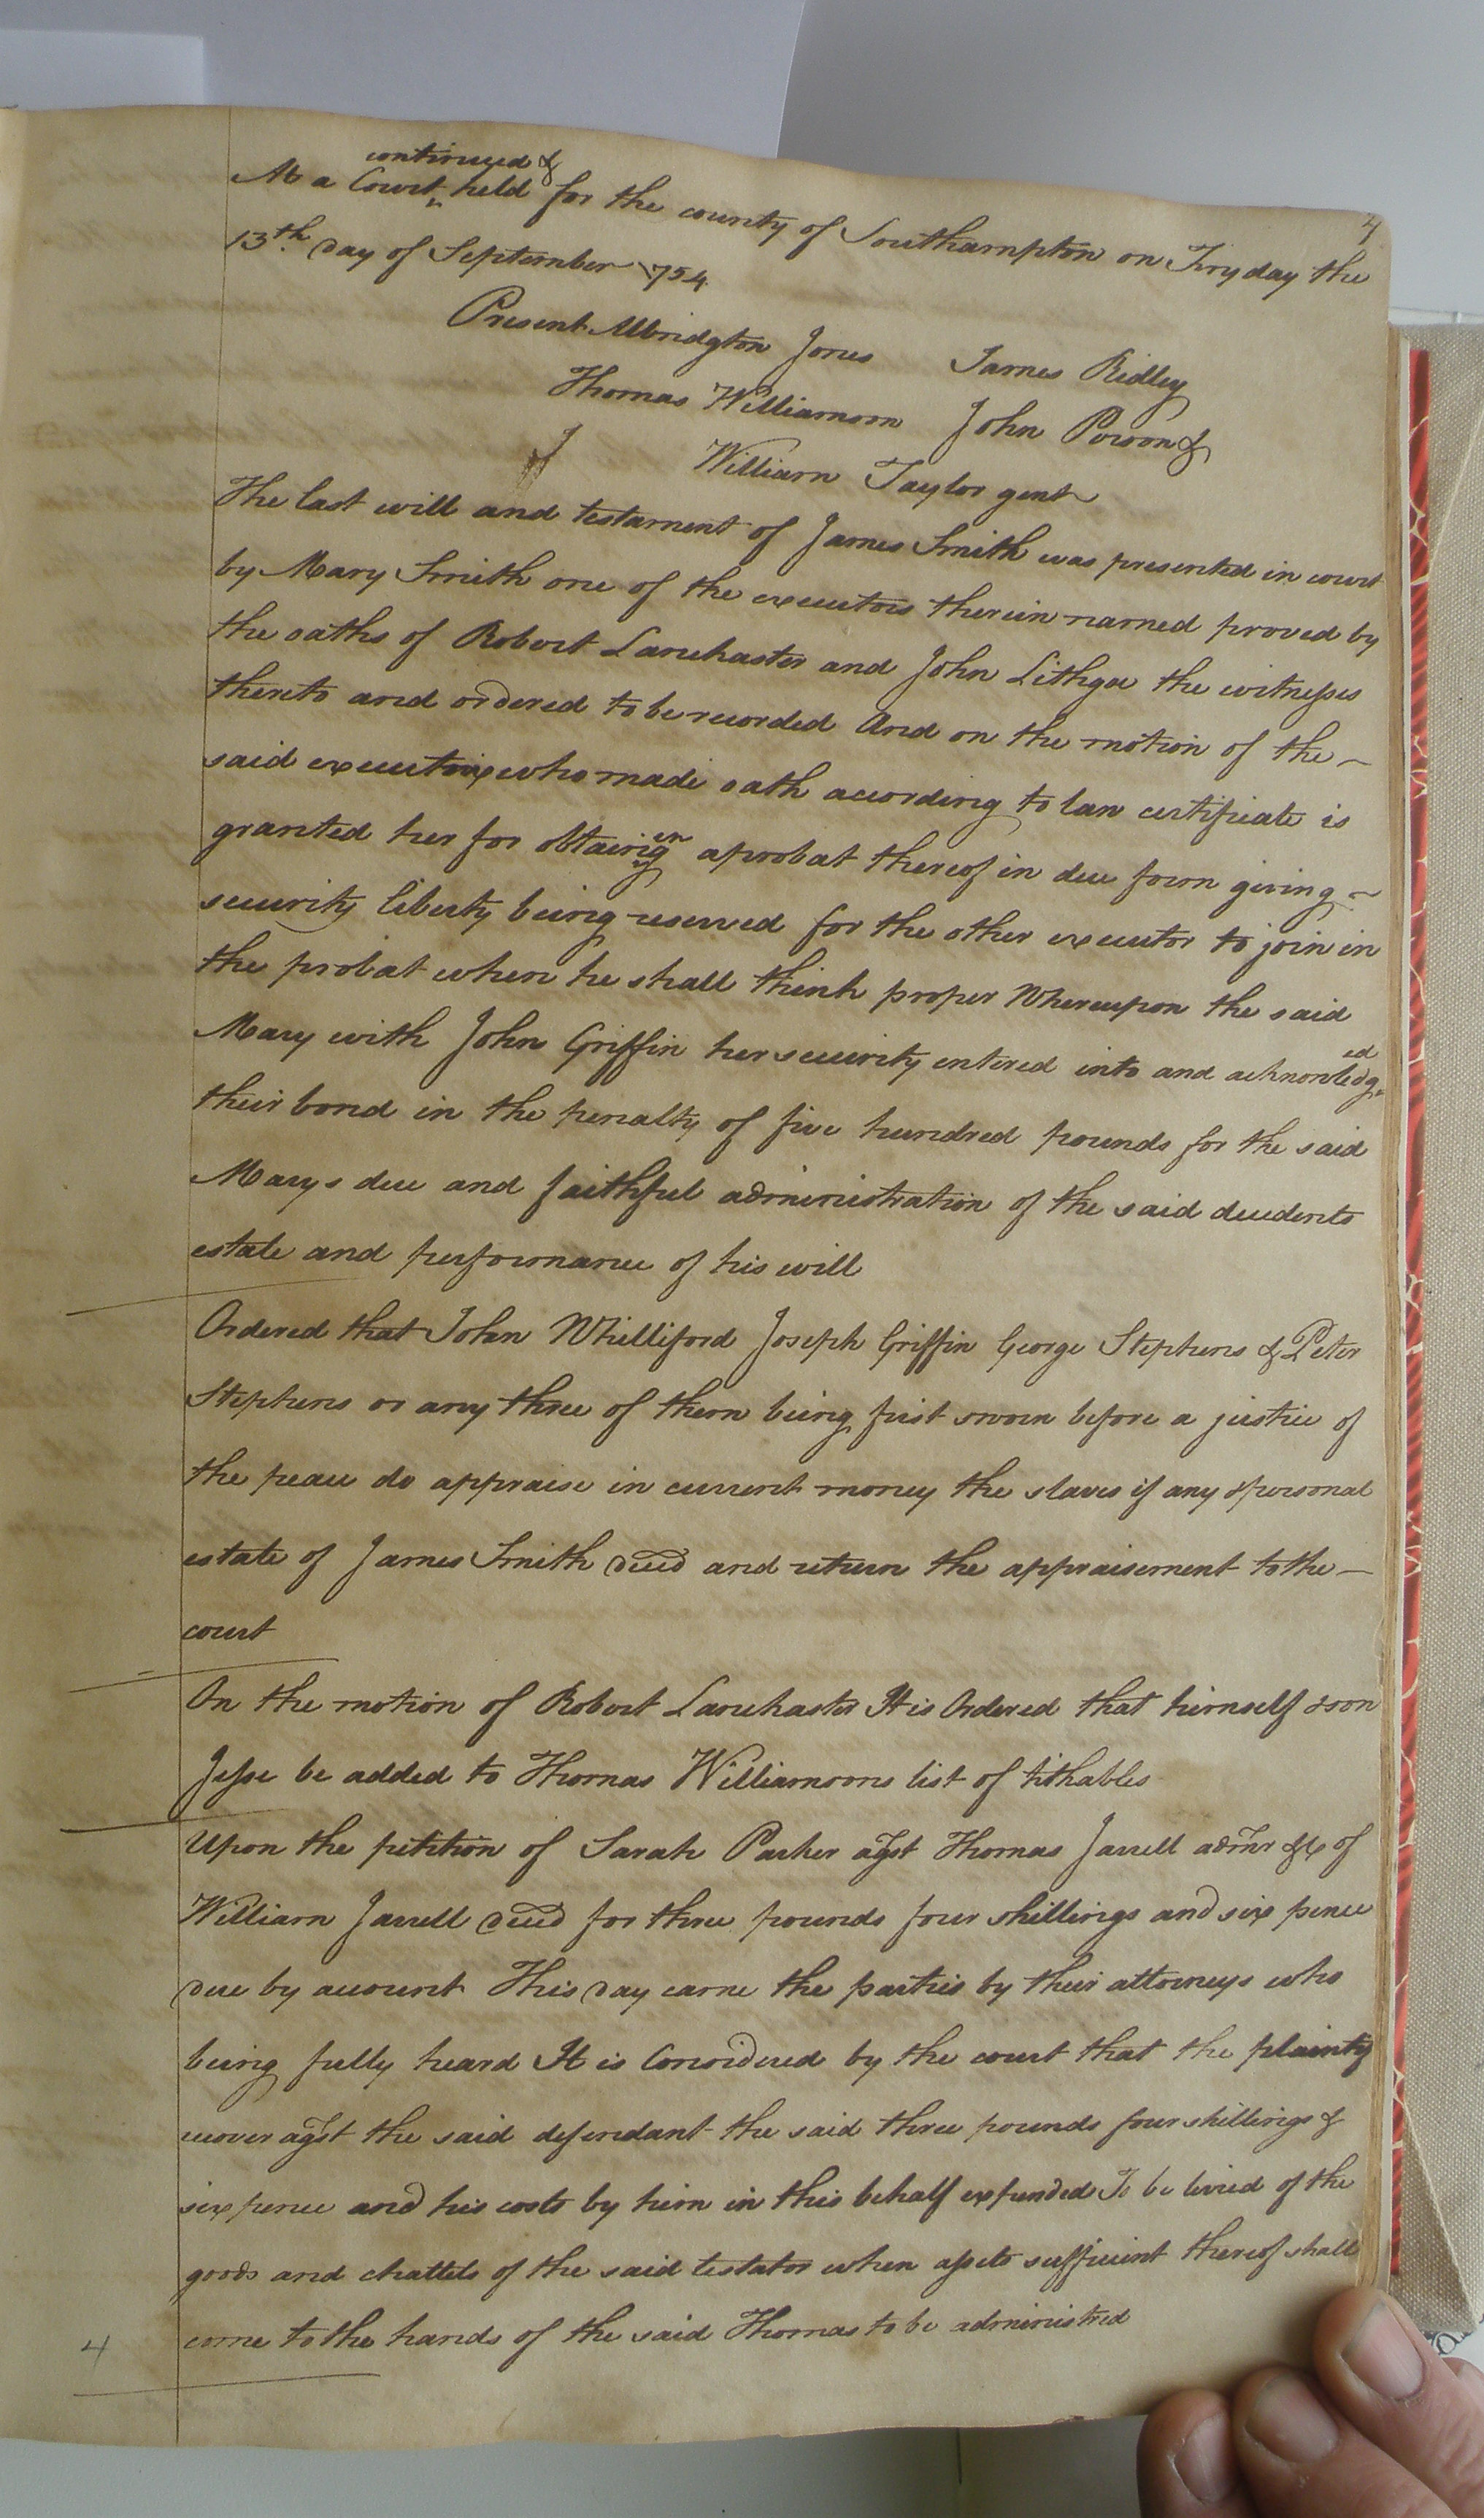 4
continued &
At a Court held for the county of Southampton on Fryday the
13th day of September 1754
Present Albridgton Jones James Ridley
Thomas Williamson John Person &
William Taylor gent
The last will and testament of James Smith was presented in court
by Mary Smith one of the executors therein named proved by
the oaths of Robert Lanchaster and John Lithgu the witnesses
thereto and ordered to be recorded And on the motion of the
said executrix who made oath according to law certificate is
granted her for obtaining aprobat thereof in due form giving
security liberty being reserved for the other executor to join in
the probat when he shall think proper Whereupon the said
Mary with John Griffin her security entered into and acknowledged
their bond in the penalty of five hundred pounds for the said
Marys due and faithful administration of the said decedents
estate and performance of his will
Ordered that John Whilliford Joseph Griffin George Stephens & Peter
Stephens or any three of them being first sworn before a justice of
the peace do appraise in current money the slaves if any & personal
estate of James Smith decd and return the appraisement to the
court
On the motion of Robert Lanchaster It is Ordered that himself & son
Jesse be added to Thomas Williamsons list of tithables
Upon the petition of Sarah Parker agst Thomas Jarrell admr &c of
William Jarrell decd for three pounds four shillings and six pence
due by account This day came the parties by their attorneys who
being fully heard It is Considered by the court that the plaintif
recover agst the said defendant the said three pounds four shillings &
six pence and his costs by him in this behalf expended To be levied of the
goods and chattels of the said testator when assets sufficient thereof shall
come to the hands of the said Thomas to be administred
4